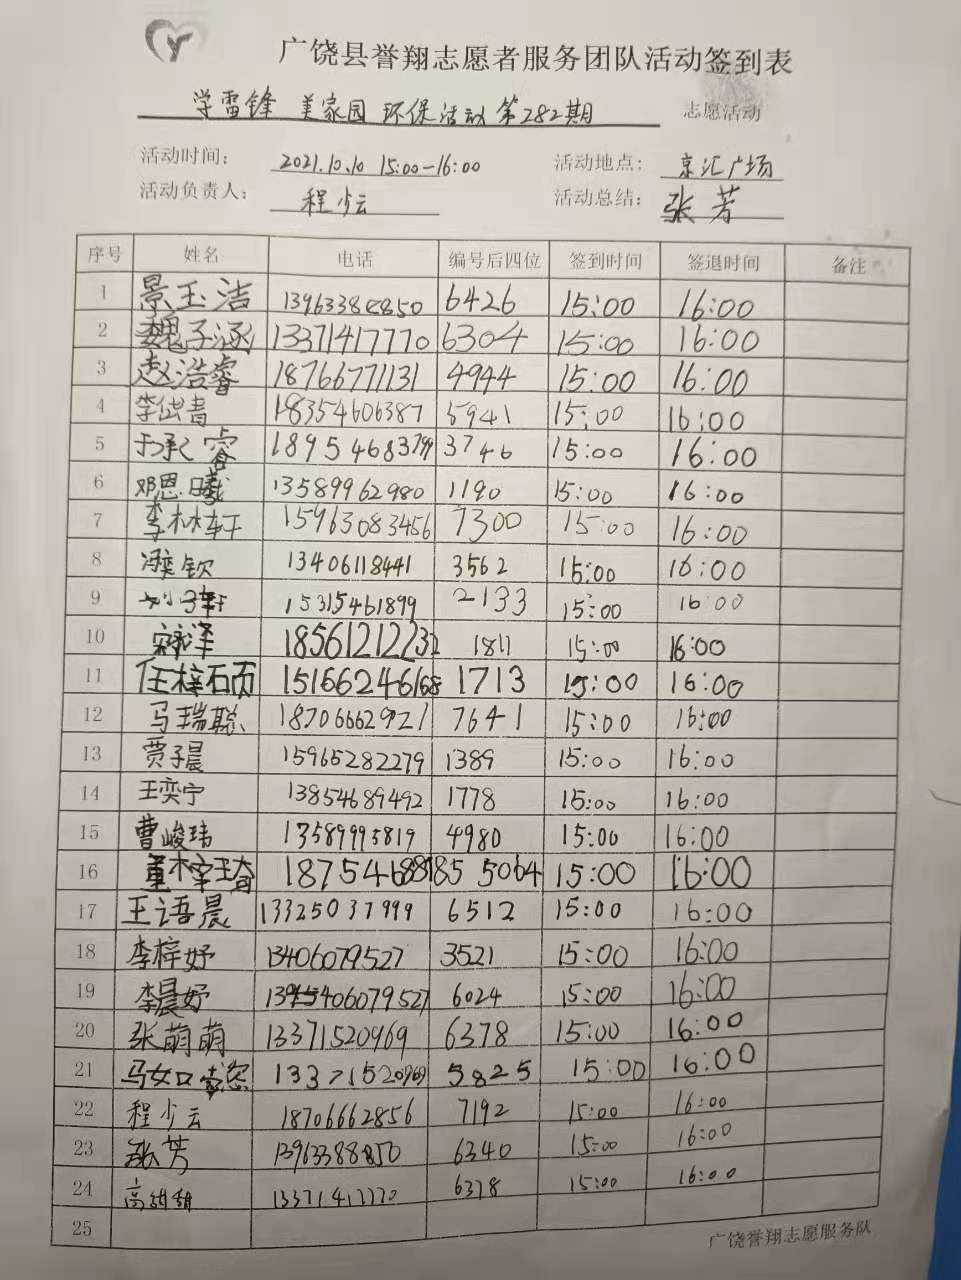 广饶县誉翔志愿者服务团队活动签到表
学雷锋 美家园 环保活动 第282期 志愿活动
活动时间: 2021.10.10 15:00-16:00 活动地点: 京汇广场
活动负责人: 程少云 活动总结: 张芳
序号 姓名 电话 编号后四位 签到时间 签退时间 备注
1 景玉洁 13963388850 6426 15:00 16:00
2 魏子涵 13371417770 6304 15:00 16:00
3 赵浩睿 18766771131 4944 15:00 16:00
4 李 18354606387 5941 15:00 16:00
5 于承睿 18954683799 3746 15:00 16:00
6 邓恩曦 13589962980 1190 15:00 16:00
7 李林轩 15963083456 7300 15:00 16:00
8 冯奕钦 13406118441 3562 15:00 16:00
9 刘子轩 15315461899 2133 15:00 16:00
10 宋泽 18561212232 1811 15:00 16:00
11 任梓硕 15166246168 1713 15:00 16:00
12 马瑞聪 18706662921 7641 15:00 16:00
13 贾子晨 15965282279 1389 15:00 16:00
14 王奕宁 13854689492 1778 15:00 16:00
15 曹峻玮 13589995819 4980 15:00 16:00
16 董梓琦 5064 15:00 16:00
17 王语晨 13325037999 6512 15:00 16:00
18 李梓妤 13406079527 3521 15:00 16:00
19 李晨妤 13406079527 6024 15:00 16:00
20 张萌萌 13371520969 6378 15:00 16:00
21 马如 13371520969 5825 15:00 16:00
22 程少云 18706662856 7192 15:00 16:00
23 张芳 13963388850 6340 15:00 16:00
24 高甜甜 13371417770 6378 15:00 16:00
25
广饶誉翔志愿服务队